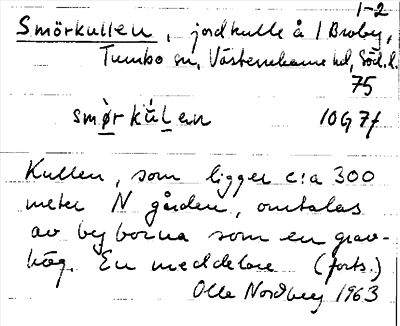 1-2
Smörkullen, jordkulle å 1 Broby,
Tumbo sn, Västerrekarne hd, Söd. l.
75
smø̀r kúlen 10G 7f
Kullen, som ligger c:a 300
meter N gården, omtalas
av byborna som en grav-
hög. En meddelare (forts.)
Olle Nordberg 1963